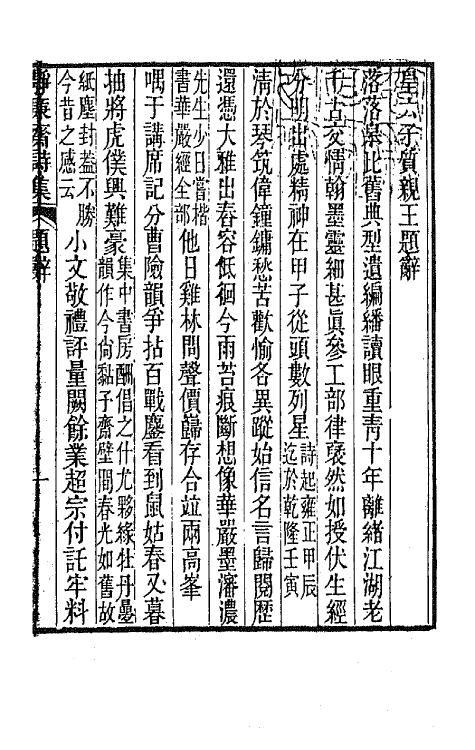 皇六子質親王題辭
落落皋比舊典型遺編繙讀眼重靑十年離緒江湖老
千古交情翰墨靈細甚眞參工部律裒然如授伏生經
分明出處精神在甲子從頭數列星詩起雍正甲辰迄於乾隆壬寅
淸於琴筑偉鐘鏞愁苦歡愉各異蹤始信名言歸閱歷
還憑大雅出舂容低徊今雨苔痕斷想像華嚴墨瀋濃
先生少日嘗楷書華嚴經全部他日雞林問聲價巋存合竝兩高峯
喁于講席記分曹險韻爭拈百戰鏖看到鼠姑春又暮
抽將虎僕興難豪集中書房酬倡之什尤夥緣牡丹疊韻作今尙黏予齋壁間春光如舊故
紙塵封葢不勝今昔之感云小文敬禮評量闕餘業超宗付託牢料
靜廉齋詩集 題辭 一